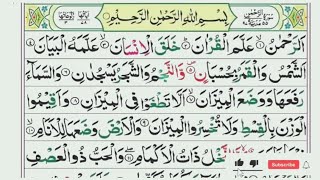 بِسْمِ اللّٰهِ الرَّحْمٰنِ الرَّحِيْمِ
اَلرَّحْمٰنُ ۙ عَلَّمَ الْقُرْاٰنَ ؕ خَلَقَ الْاِنْسَانَ ۙ عَلَّمَهُ الْبَيَانَ
اَلشَّمْسُ وَالْقَمَرُ بِحُسْبَانٍ ۪ وَّالنَّجْمُ وَالشَّجَرُ يَسْجُدٰنِ وَالسَّمَآءَ
رَفَعَهَا وَوَضَعَ الْمِيْزَانَ ۙ اَلَّا تَطْغَوْا فِى الْمِيْزَانِ وَاَقِيْمُوا
الْوَزْنَ بِالْقِسْطِ وَلَا تُخْسِرُوا الْمِيْزَانَ وَالْاَرْضَ وَضَعَهَا لِلْاَنَامِ ۙ
نَّخْلُ ذَاتُ الْاَكْمَامِ ۖ وَالْحَبُّ ذُو الْعَصْفِ
Subscribe